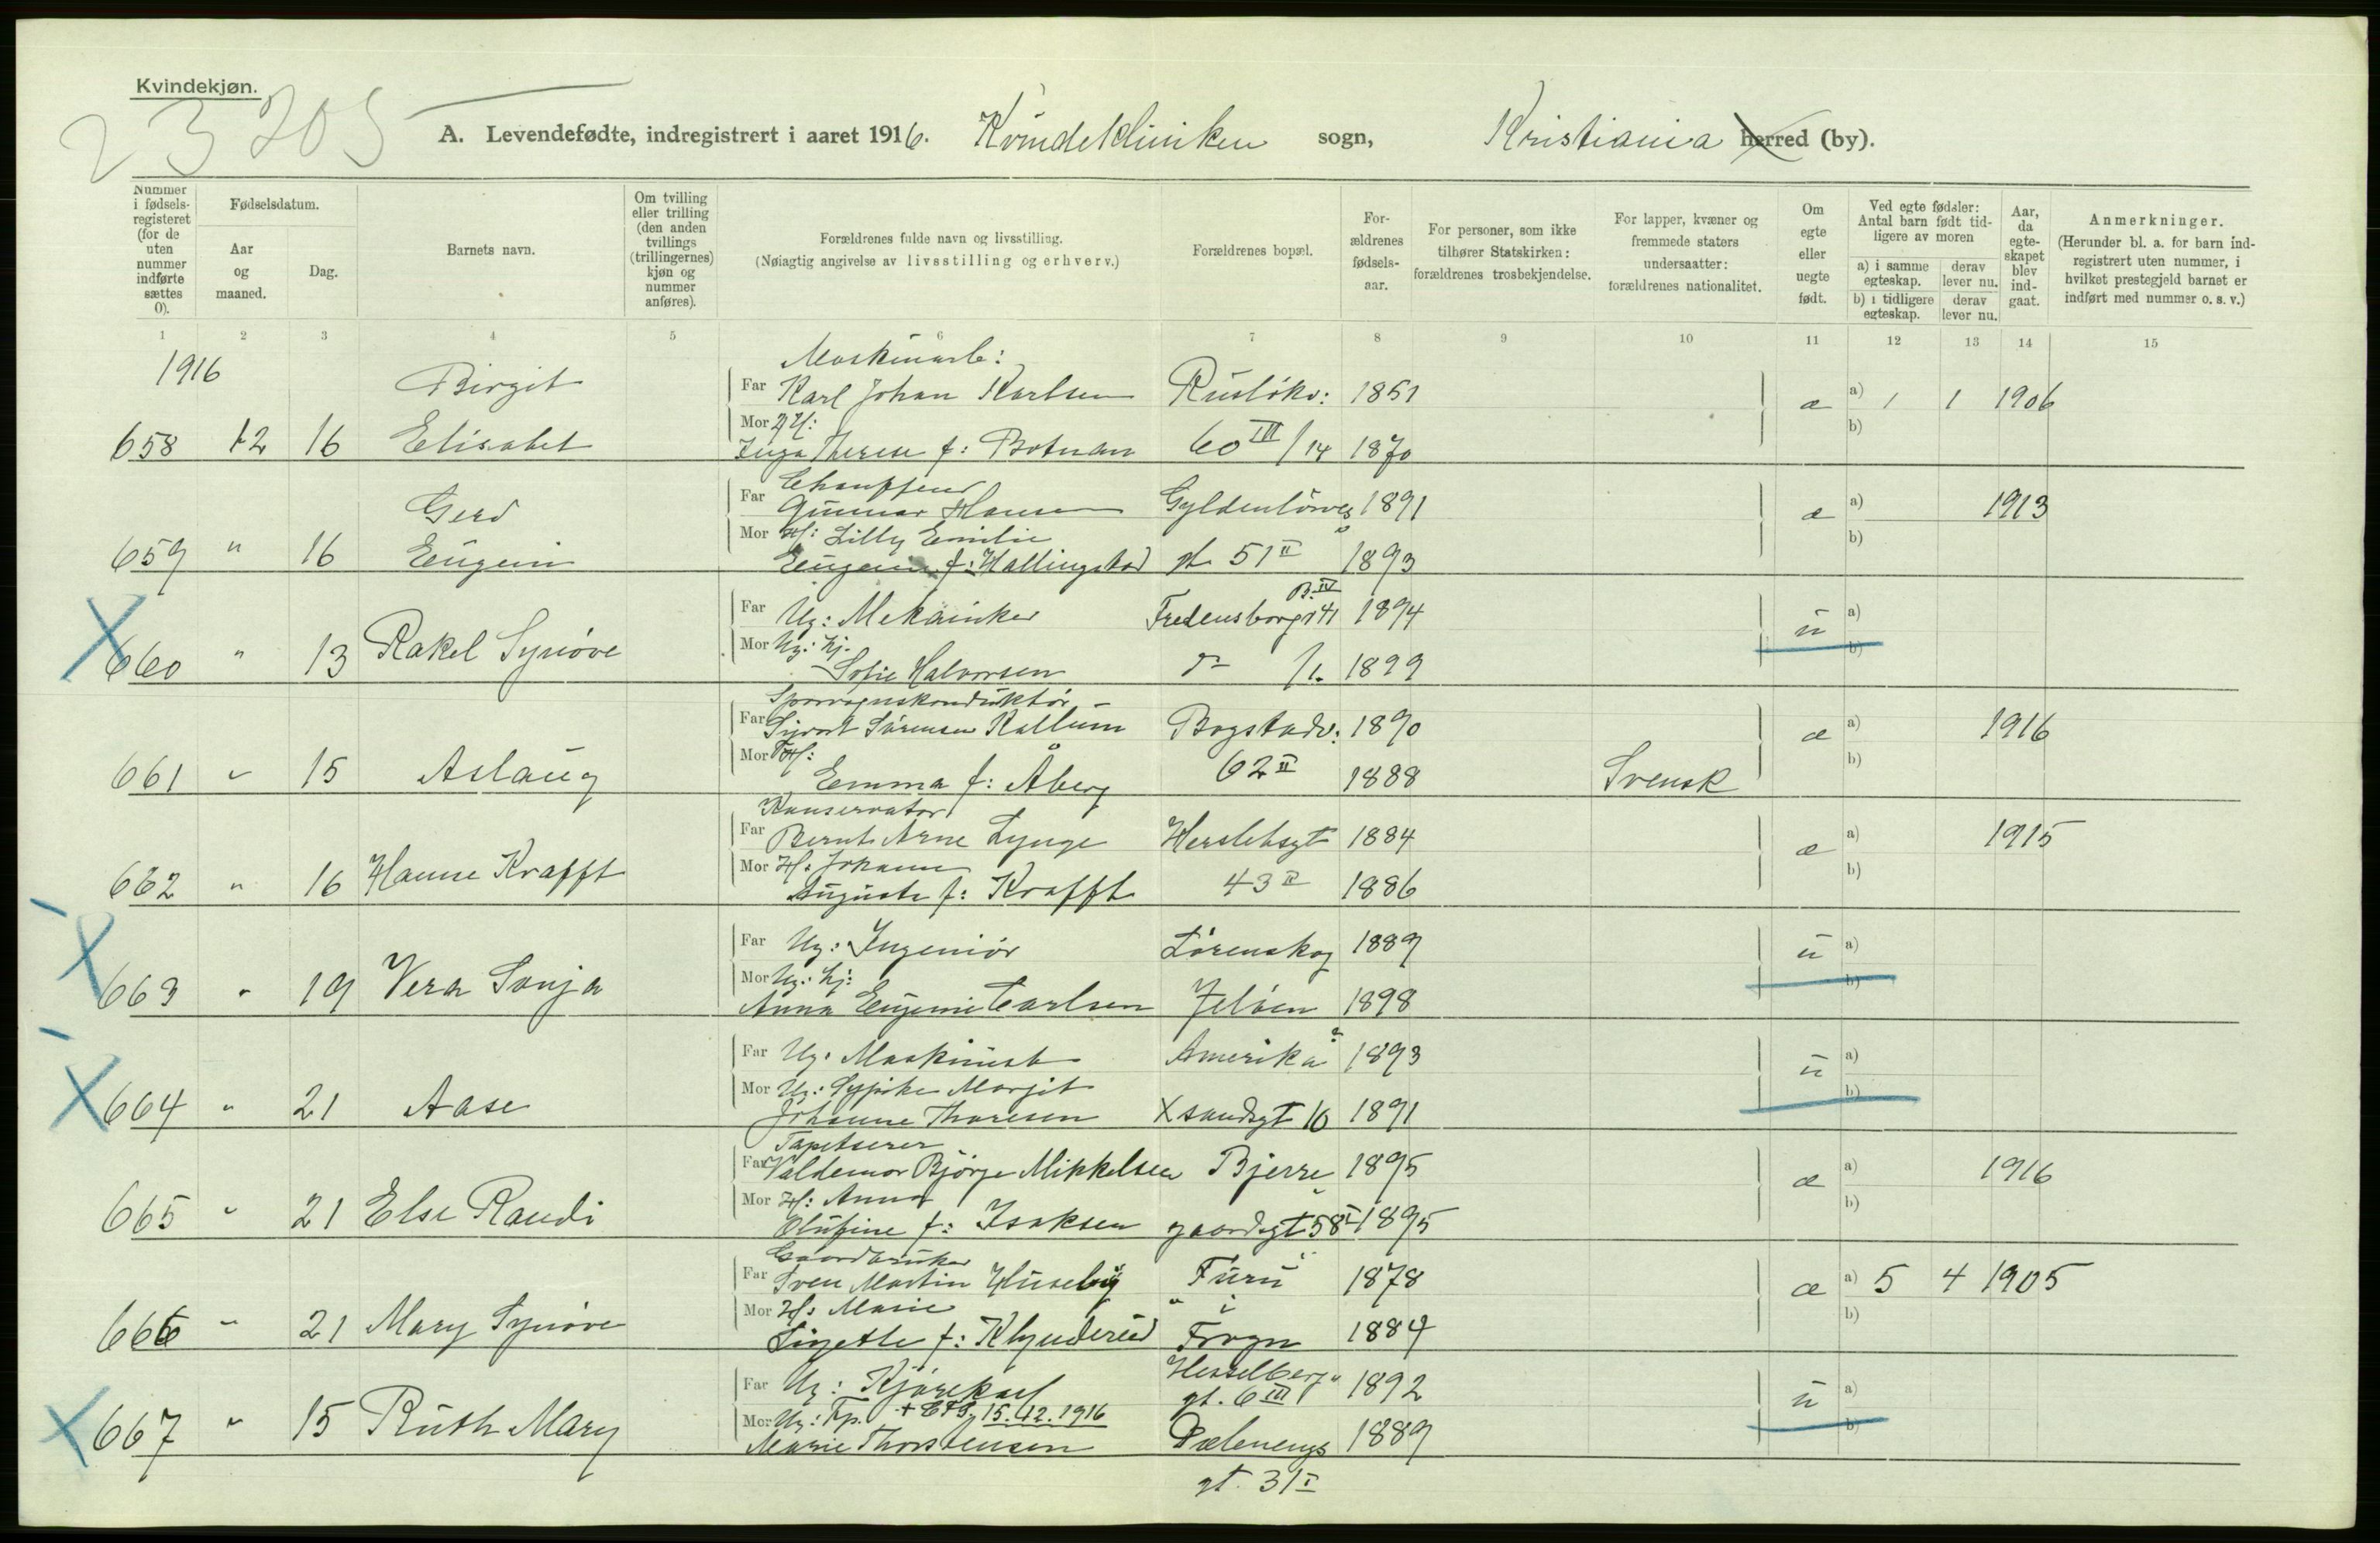 Kvindekjøn.
23 205
A. Levendefødte, indregistrert i aaret 1916. Kvindeklinikken sogn, Kristiania herred (by).
Nummer i fødselsregisteret (for de uten nummer indførte sættes 0).
Fødselsdatum.
Aar og maaned.
Dag.
Barnets navn.
Om tvilling eller trilling (den anden tvillings (trillingernes) kjøn og nummer anføres).
Forældrenes fulde navn og livsstilling.
(Nøiagtig angivelse av livsstilling og erhverv.)
Forældrenes bopæl.
Forældrenes fødselsaar.
For personer, som ikke tilhører Statskirken: forældrenes trosbekjendelse.
For lapper, kvæner og fremmede staters undersaatter: forældrenes nationalitet.
Om egte eller uegte født.
Ved egte fødsler: Antal barn født tidligere av moren
a) i samme egteskap. derav lever nu.
b) i tidligere egteskap. derav lever nu.
Aar, da egteskapet blev indgaat.
Anmerkninger.
(Herunder bl. a. for barn indregistrert uten nummer, i hvilket prestegjeld barnet er indført med nummer o. s. v.)
1 2 3 4 5 6 7 8 9 10 11 12 13 14 15
1916
Maskinarb:
Birgit Far Karl Johan Karlsen Ruslökv: 1851 æ a) 1 1 1906
Mor H: b)
658 12 16 Elisabet Inga Therese f: Botnan 60 III/14 1870
Chauffeur
Gerd Far Gunnar Hansen Gyldenlöves 1891 æ a) 1913
Mor H: Lilly Emilie b)
659 " 16 Eugeni Eugenie f: Hallingstad gt 51 II 1893
B. IV
Far Ug: Mekaniker Fredensborg 41 1894 u a)
Mor Ug: Hj. b)
660 " 13 Rakel Synöve Sofie Halvorsen 1899
Sporvognskonduktör
Far Syvert Sörensen Kallum Bogstadv: 1890 æ a) 1916
Mor H: b)
661 " 15 Aslaug Emma f: Åberg 62 II 1888 Svensk
Konservator
Far Bernt Arne Lynge Herslebsgt 1884 æ a) 1915
Mor H: Johanne b)
662 " 16 Hanne Krafft Auguste f: Krafft 43 1886
Far Ug: Ingeniör Lörenskog 1889 u a)
Mor Ug: Hj: b)
663 " 19 Vera Sonja Anna Eugenie Carlsen Jelöen 1898
Far Ug: Maskinist Amerika ? 1893 u a)
Mor Ug: Sypike Margit b)
664 " 21 Aase Johanne Thoresen Xsandsgt 10 1891
Tapetserer
Far Valdemar Björge Mikkelsen Bjerre 1895 æ a) 1916
Mor H: Anna b)
665 " 21 Else Randi Olufine f: Isaksen gaardsgt 58 I 1895
Gaardbruker
Far Sven Martin Huseby Furu 1878 æ a) 5 4 1905
Mor H: Marie i b)
666 " 21 Mary Synöve Lizette f: Klynderud Frogn 1884
Hesselberg
Far Ug: Kjörekarl gt. 6 III 1892 u a)
Mor Ug: Fp. + 15.12.1916 b)
667 " 15 Ruth Mary Marie Thorstensen Dælenengs 1889
gt. 31 I